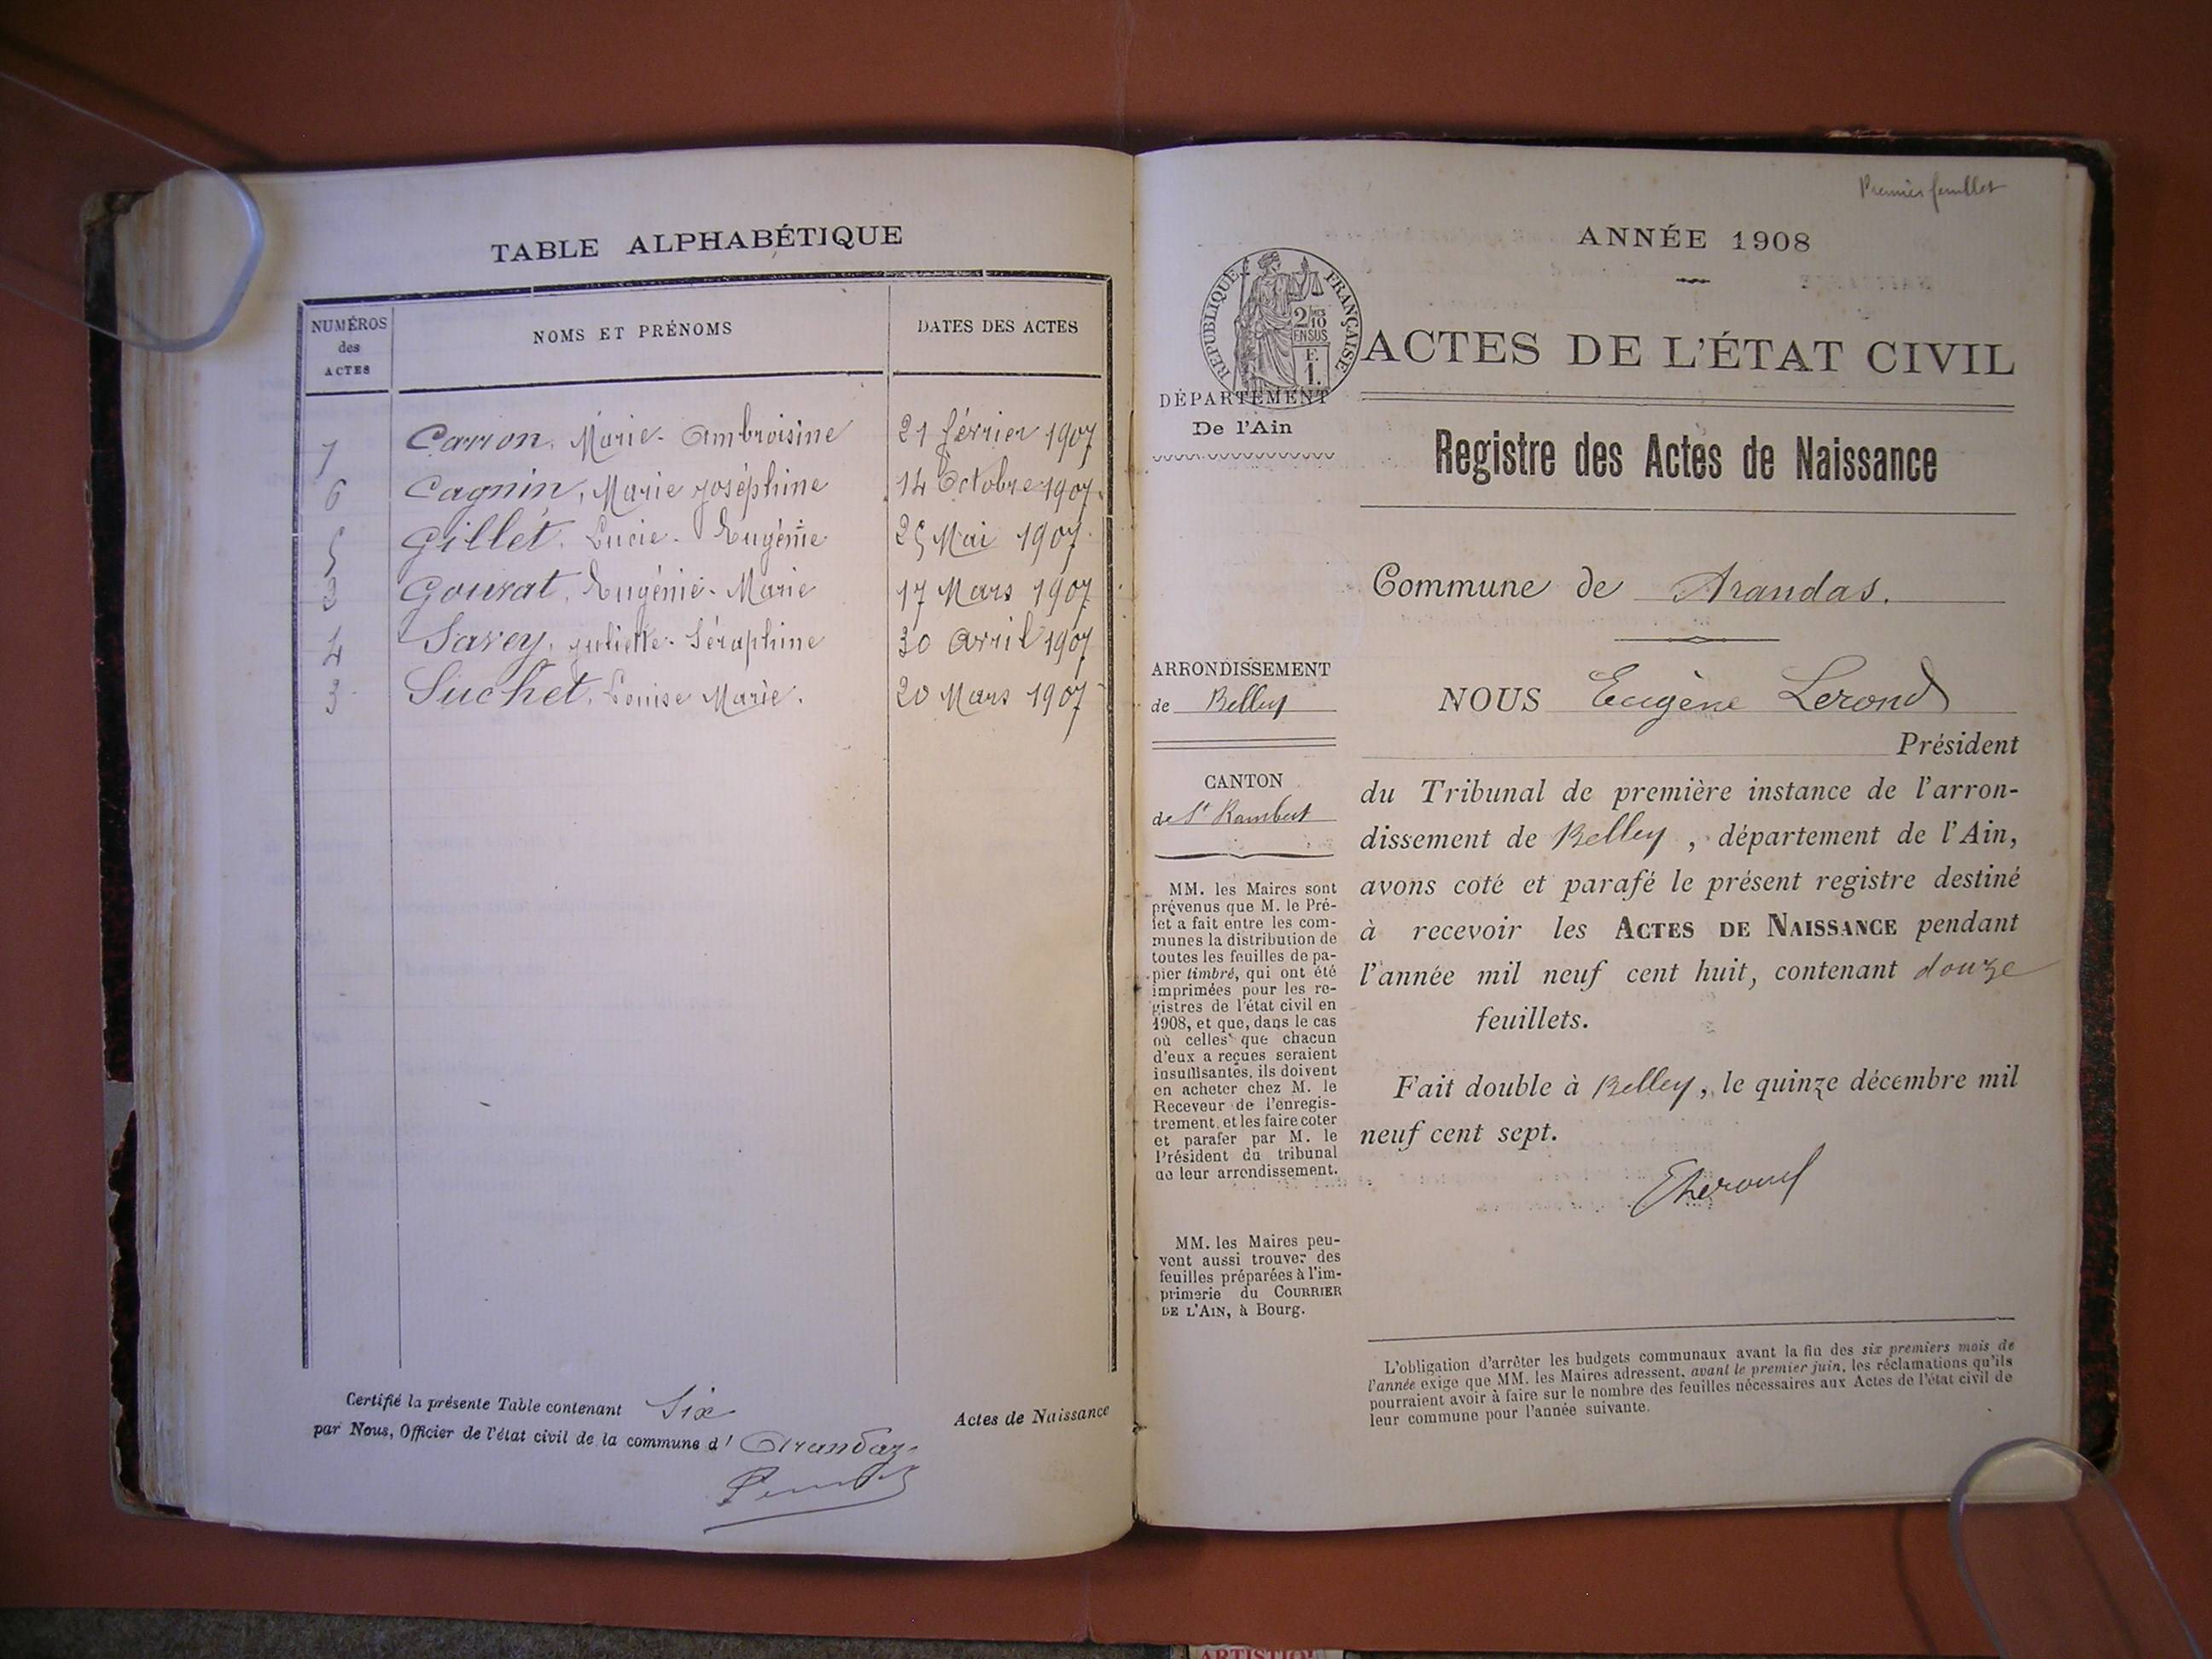 TABLE ALPHABÉTIQUE
NUMÉROS
des
ACTES
NOMS ET PRÉNOMS
DATES DES ACTES
1 Carron, Marie-Ambroisine 21 février 1907
6 Cagnin, Marie Joséphine 14 Octobre 1907.
5 Gillet, Lucie-Eugénie 25 Mai 1907.
Gourat, Eugénie-Marie 17 Mars 1907
4 Savey, Juliette-Séraphine 30 Avril 1907
3 Suchet, Louise Marie. 20 Mars 1907
Certifié la présente Table contenant Six Actes de Naissance
par Nous, Officier de l'état civil de la commune d' Arandas
Premier feuillet
ANNÉE 1908
RÉPUBLIQUE FRANÇAISE
2/10
EN SUS
F.
1.
ACTES DE L'ÉTAT CIVIL
DÉPARTEMENT
De l'Ain
Registre des Actes de Naissance
Commune de Arandas.
ARRONDISSEMENT
de Belley
CANTON
de St Rambert
MM. les Maires sont
prévenus que M. le Pré-
fet a fait entre les com-
munes la distribution de
toutes les feuilles de pa-
pier timbré, qui ont été
imprimées pour les re-
gistres de l'état civil en
1908, et que, dans le cas
où celles que chacun
d'eux a reçues seraient
insuffisantes, ils doivent
en acheter chez M. le
Receveur de l'enregis-
trement, et les faire coter
et parafer par M. le
Président du tribunal
de leur arrondissement.
MM. les Maires peu-
vent aussi trouver des
feuilles préparées à l'im-
primerie du COURRIER
DE L'AIN, à Bourg.
NOUS Eugène Lerond
Président
du Tribunal de première instance de l'arron-
dissement de Belley, département de l'Ain,
avons coté et parafé le présent registre destiné
à recevoir les ACTES DE NAISSANCE pendant
l'année mil neuf cent huit, contenant douze
feuillets.
Fait double à Belley, le quinze décembre mil
neuf cent sept.
ELerond
L'obligation d'arrêter les budgets communaux avant la fin des six premiers mois de
l'année exige que MM. les Maires adressent, avant le premier juin, les réclamations qu'ils
pourraient avoir à faire sur le nombre des feuilles nécessaires aux Actes de l'état civil de
leur commune pour l'année suivante.